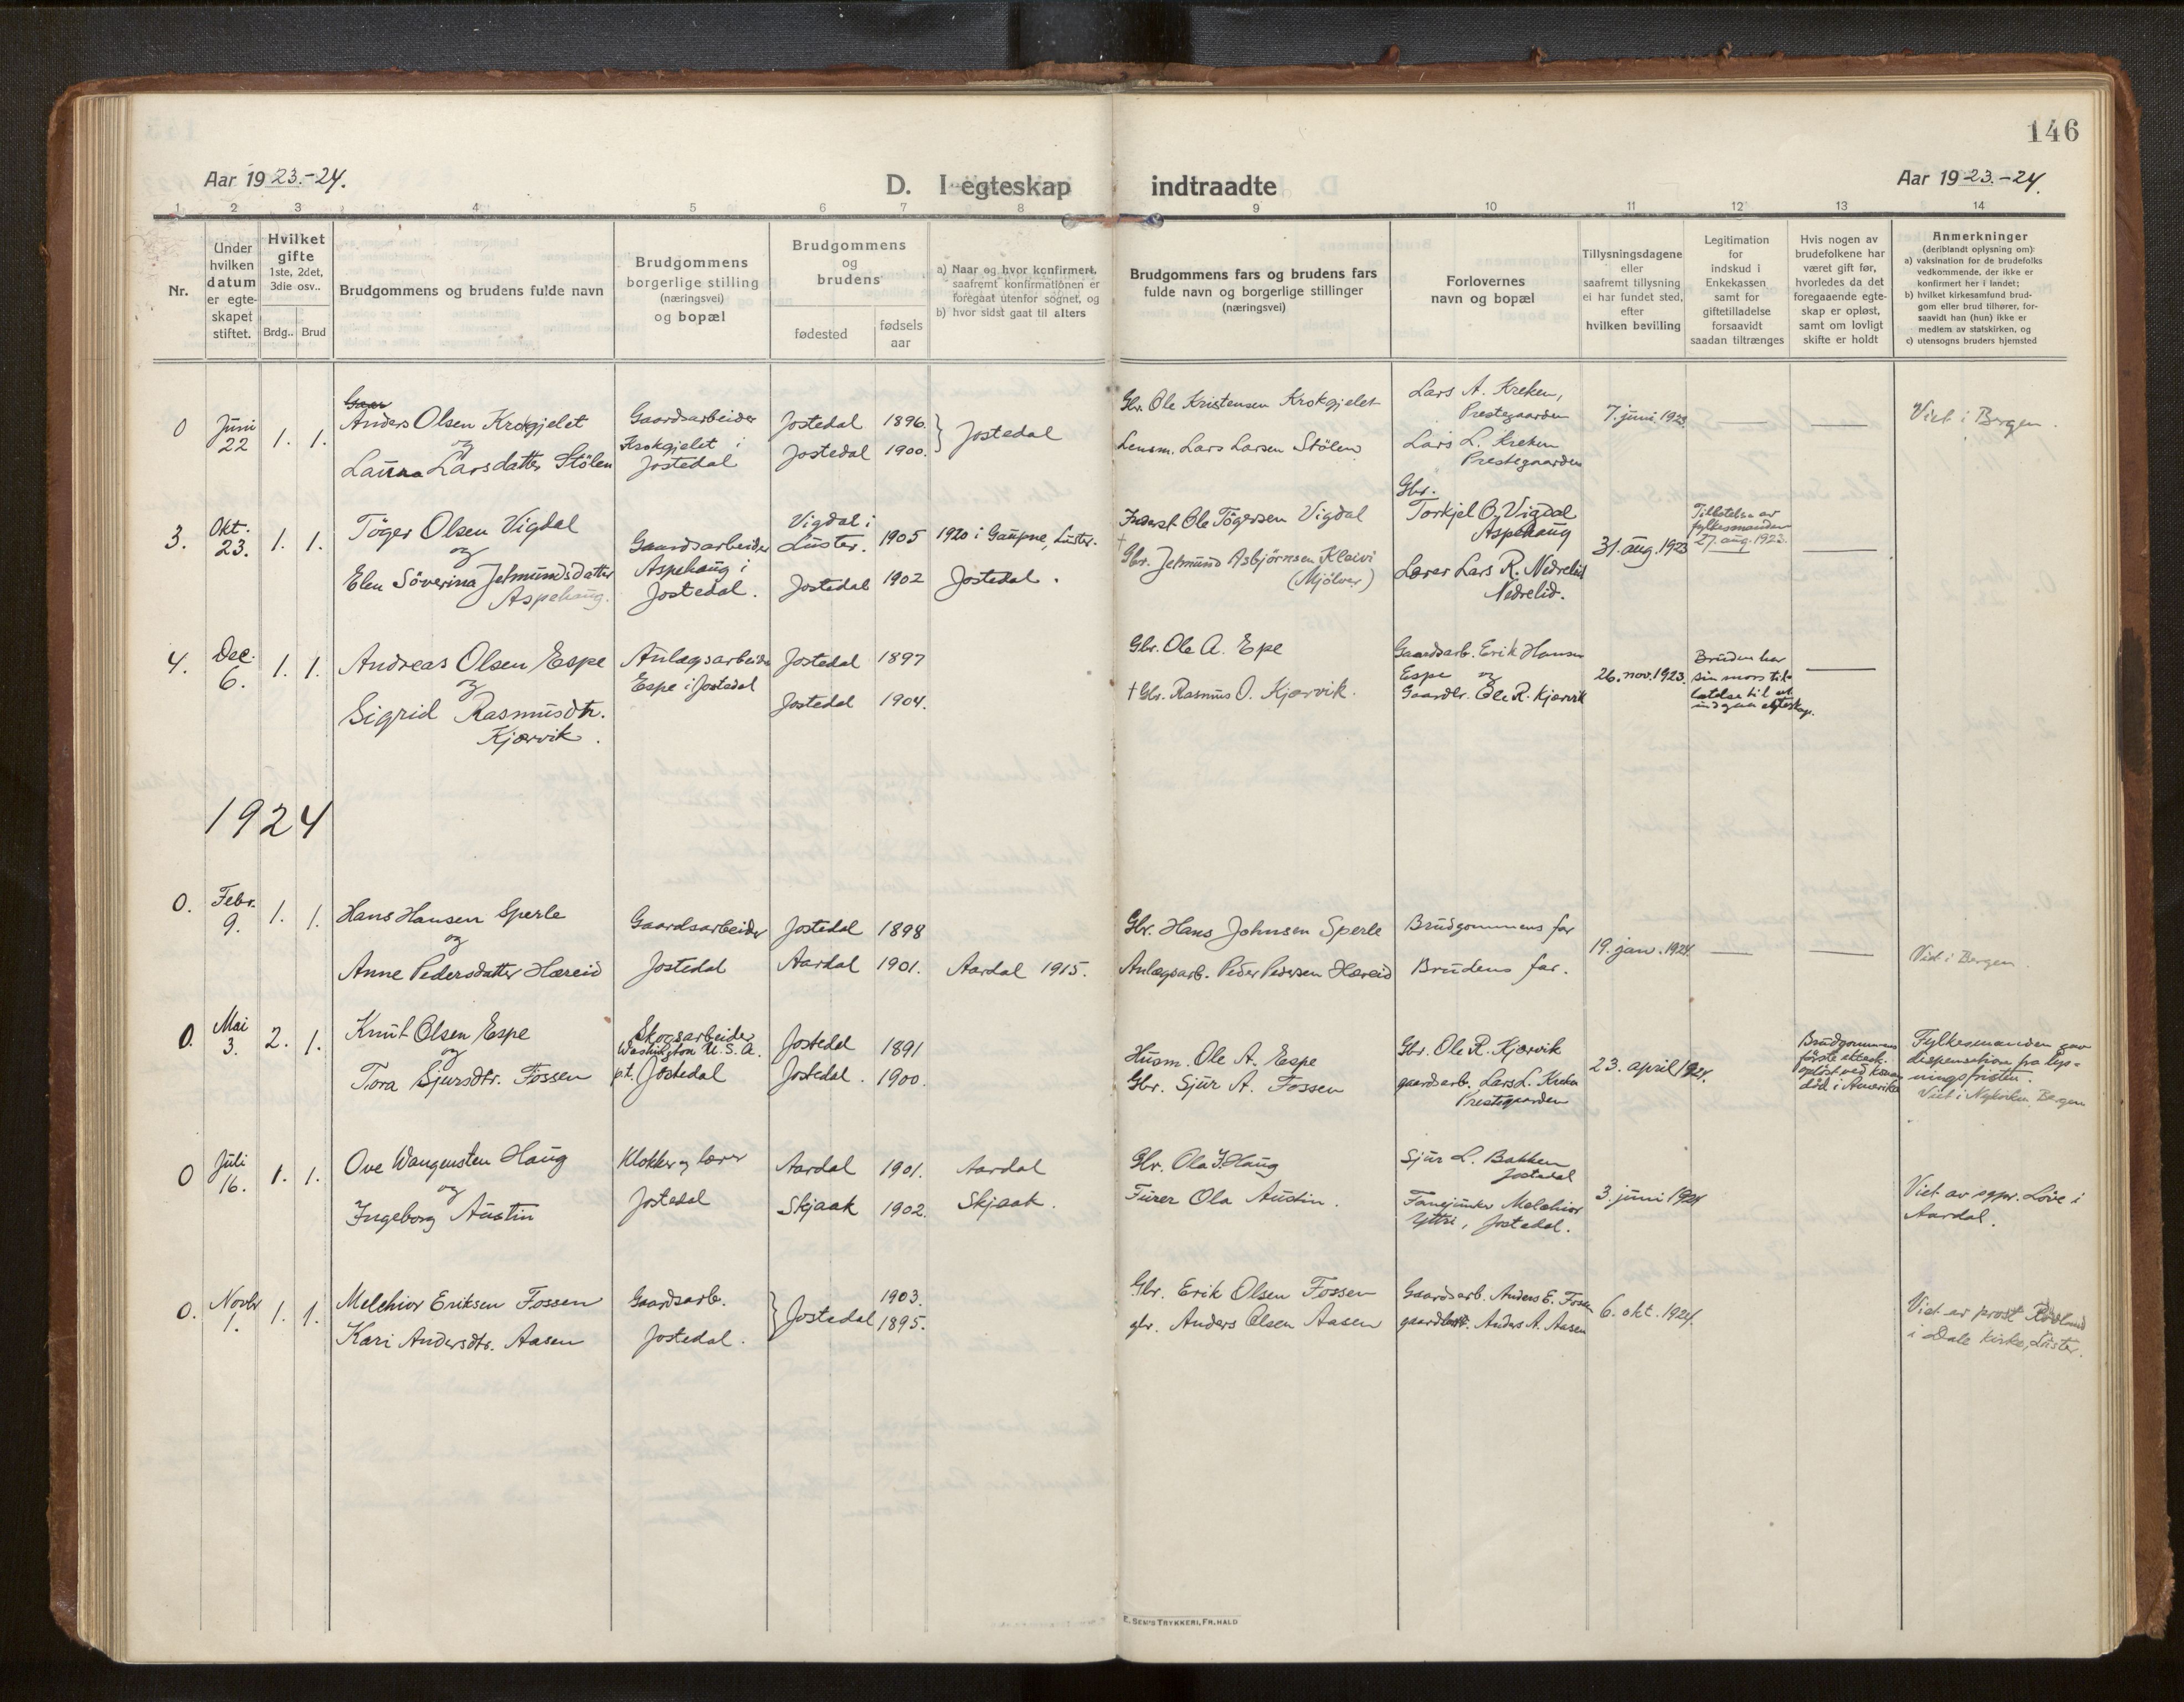 146
Aar 1923.-24.
D. I egteskap indtraadte
Aar 1923.-24.
1 2 3 4 5 6 7 8 9 10 11 12 13 14
Nr.
Under
hvilken
datum
er egte-
skapet
stiftet.
Hvilket
gifte
1ste, 2det,
3die osv..
Brdg.. Brud
Brudgommens og brudens fulde navn
Brudgommens
borgerlige stilling
(næringsvei)
og bopæl
Brudgommens
og
brudens
fødested
fødsels
aar
a) Naar og hvor konfirmert,
saafremt konfirmationen er
foregaat utenfor sognet, og
b) hvor sidst gaat til alters
Brudgommens fars og brudens fars
fulde navn og borgerlige stillinger
(næringsvei)
Forlovernes
navn og bopæl
Tillysningsdagene
eller
saafremt tillysning
ei har fundet sted,
efter
hvilken bevilling
Legitimation
for
indskud i
Enkekassen
samt for
giftetilladelse
forsaavidt
saadan tiltrænges
Hvis nogen av
brudefolkene har
været gift før,
hvorledes da det
foregaaende egte-
skap er opløst,
samt om lovligt
skifte er holdt
Anmerkninger
(deriblandt oplysning om):
a) vaksination for de brudefolks
vedkommende, der ikke er
konfirmert her i landet;
b) hvilket kirkesamfund brud-
gom eller brud tilhører, for-
saavidt han (hun) ikke er
medlem av statskirken, og
c) utensogns bruders hjemsted
0
Juni
22
1. 1.
Gaar
Anders Olsen Krokgjelet
og
Laura Larsdatter Stölen
Gaardsarbeider
Krokgjelet i
Jostedal
Jostedal 1896.
Jostedal 1900.
Jostedal
Gbr. Ole Kristensen Krokgjelet
Lensm. Lars Larsen Stölen
Lars A. Kreken,
Prestegaarden
Lars L. Kreken
Prestegaarden
7. juni 1923.
Viet i Bergen.
3.
Okt.
23.
1. 1.
Töger Olsen Vigdal
og
Elen Söverina Jetmundsdatter
Aspehaug.
Gaardsarbeider
Aspehaug i
Jostedal.
Vigdal i
Luster. 1905
Jostedal 1902
1920 i Gaupne, Luster.
Jostedal.
Inderst Ole Tögersen Vigdal
†
Gbr. Jetmund Asbjörnsen Kleivi
(Mjölver)
Gbr.
Torkjel O. Vigdal
Aspehaug
Lærer Lars R. Nedrelid
Nedrelid.
31. aug. 1923
Tillatelse av
fylkesmanden
27. aug. 1923.
4.
Dec.
6.
1. 1.
Andreas Olsen Espe
og
Sigrid Rasmusdtr.
Kjærvik.
Anlægsarbeider
Espe i Jostedal
Jostedal 1897
Jostedal 1904.
Gbr. Ole A. Espe
† Gbr. Rasmus O. Kjærvik.
Gaardsarb. Erik Hansen
Espe og
Gaardbr. Ole R. Kjærvik
26. nov. 1923.
Bruden har
sin mors til-
latelse til at
indgaa egteskap.
1924
0.
Febr.
9.
1. 1.
Hans Hansen Sperle
og
Anne Pedersdatter Hæreid
Gaardsarbeider
Jostedal
Jostedal 1898
Aardal 1901.
Aardal 1915.
Gbr. Hans Johnsen Sperle
Anlægsarb. Peder Pedersen Hæreid
Brudgommens far
Brudens far.
19. jan. 1924.
Viet i Bergen.
0.
Mai
3.
2. 1.
Knut Olsen Espe
og
Tora Sjursdtr. Fossen
Skogsarbeider
Washington U.S.A.
p.t. Jostedal
Jostedal 1891
Jostedal. 1900.
Husm. Ole A. Espe
Gbr. Sjur A. Fossen
Gbr. Ole R. Kjærvik
gaardsarb. Lars L. Kreken
Prestegaarden
23. april 1924.
Brudgommens
förste ektesk.
oplöst ved konens
död i Amerika
Fylkesmanden gav
dispensation fra lys-
ningsfristen.
Viet i Nykirken, Bergen
0
Juli
16.
1. 1.
Ove Wangensten Haug
og
Ingeborg Austin
Klokker og lærer
Jostedal
Aardal 1901.
Skjaak 1902.
Aardal
Skjaak.
Gbr. Ola J. Haug
Furer Ola Austin.
Sjur L. Bakken
Jostedal
Fanejunker Melchior
Yttri, Jostedal.
3. juni 1924
Viet av sgpr. Löve i
Aardal.
0.
Novbr
1.
1. 1.
Melchior Eriksen Fossen
Kari Andersdtr. Aasen
Gaardsarb.
Jostedal.
Jostedal
1903.
1895.
Gbr. Erik Olsen Fossen
gbr. Anders Olsen Aasen
Gaardsarb. Anders E. Fossen
Anders A. Aasen
6. okt. 1924.
Viet av prost
i Dale kirke, Luster.
E. SEM'S TRYKKERI, FR.HALD